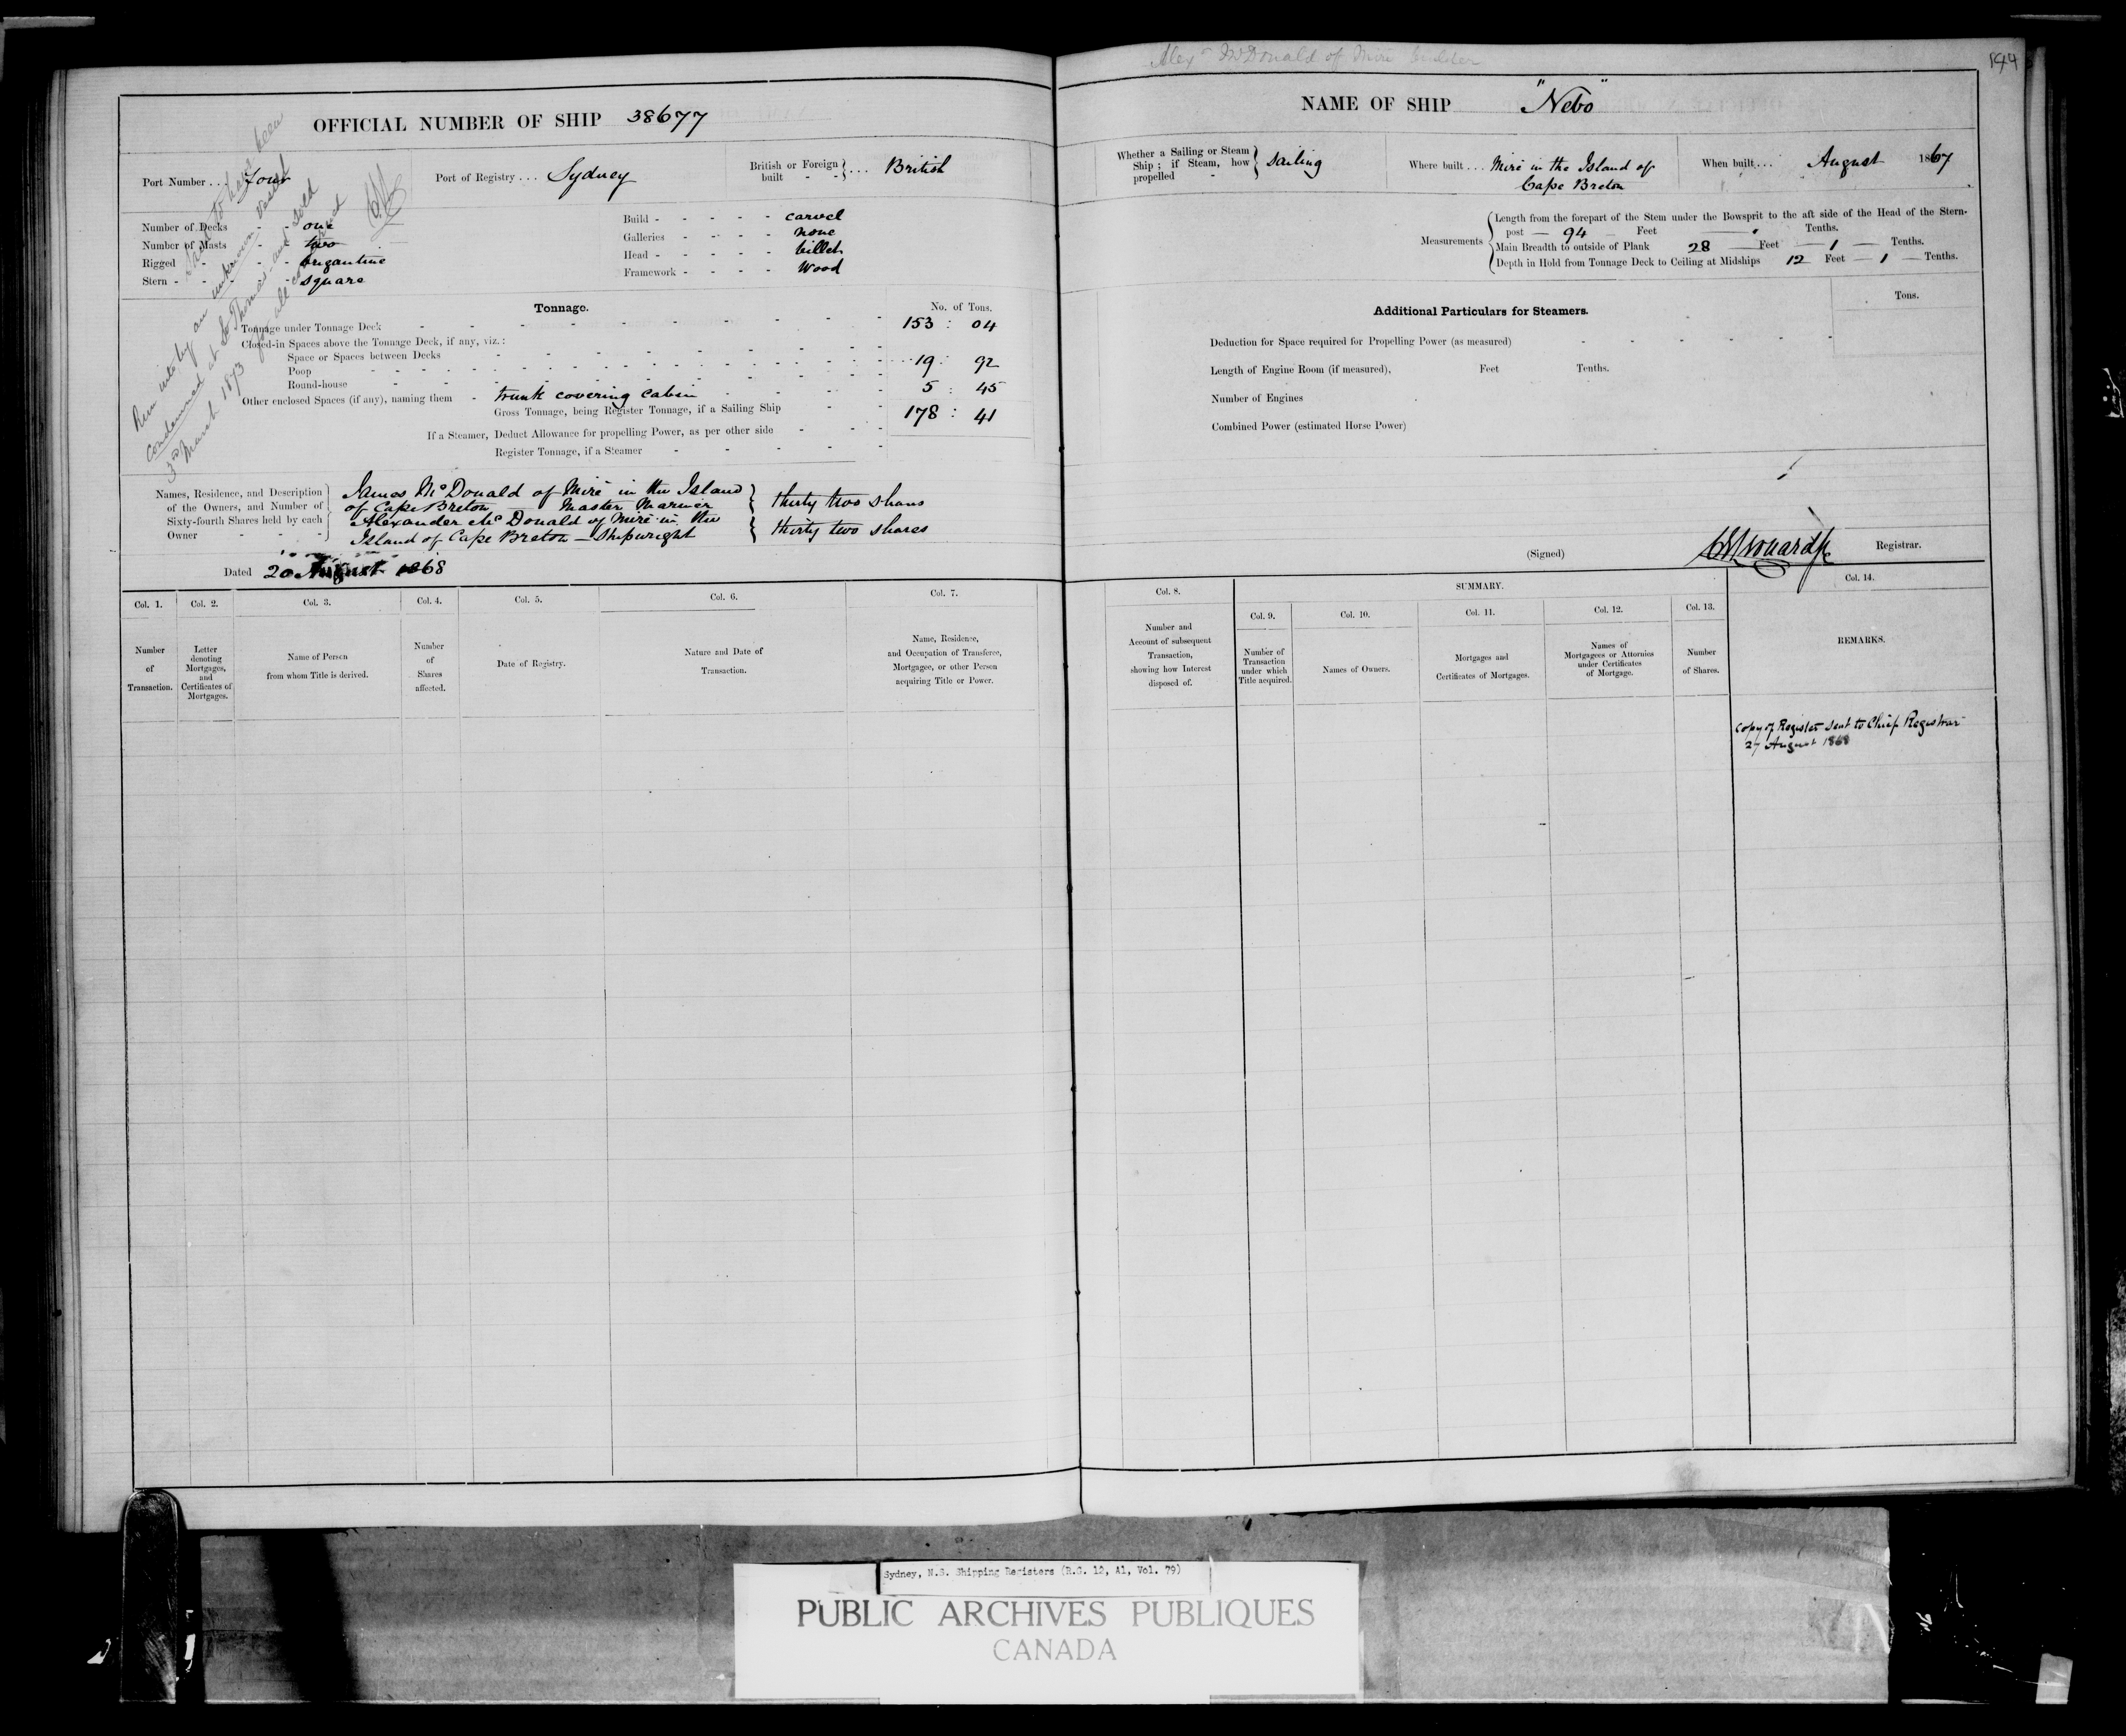 Alexr McDonald of Miré builder
194
OFFICIAL NUMBER OF SHIP 38677
Port Number . . . Four
Port of Registry . . . Sydney
British or Foreign built - - } . . . British
Number of Decks - - one
Number of Masts - - two
Rigged - - - brigantine
Stern - - - - square
Build - - - - - carvel
Galleries - - - - none
Head - - - - - billet
Framework - - - - Wood
Tonnage.
No. of Tons.
Tonnage under Tonnage Deck 153 : 04
Closed-in Spaces above the Tonnage Deck, if any, viz. :
Space or Spaces between Decks
Poop 19 : 92
Round-house
Other enclosed Spaces (if any), naming them - trunk covering cabin 5 : 45
Gross Tonnage, being Register Tonnage, if a Sailing Ship 178 : 41
If a Steamer, Deduct Allowance for propelling Power, as per other side
Register Tonnage, if a Steamer
Said to have been
Run into by an unknown vessel
condemned at St Thomas and sold
3rd March 1873
Names, Residence, and Description of the Owners, and Number of Sixty-fourth Shares held by each Owner - - -
James McDonald of Miré in the Island
of Cape Breton — Master Mariner } thirty two shares
Alexander McDonald of Miré in the
Island of Cape Breton — Shipwright } thirty two shares
Dated 20 August 1868
NAME OF SHIP "Nebo"
Whether a Sailing or Steam Ship ; if Steam, how propelled - } Sailing
Where built . . . Miré in the Island of
Cape Breton
When built . . . August 1867
Measurements
Length from the forepart of the Stem under the Bowsprit to the aft side of the Head of the Stern-
post — 94 — Feet Tenths.
Main Breadth to outside of Plank 28 Feet 1 Tenths.
Depth in Hold from Tonnage Deck to Ceiling at Midships 12 Feet 1 Tenths.
Additional Particulars for Steamers.
Tons.
Deduction for Space required for Propelling Power (as measured)
Length of Engine Room (if measured), Feet Tenths.
Number of Engines
Combined Power (estimated Horse Power)
(Signed) Registrar.
Col. 1. Col. 2. Col. 3. Col. 4. Col. 5. Col. 6. Col. 7.
Number of Transaction.
Letter denoting Mortgages, and Certificates of Mortgages.
Name of Person from whom Title is derived.
Number of Shares affected.
Date of Registry.
Nature and Date of Transaction.
Name, Residence, and Occupation of Transferee, Mortgagee, or other Person acquiring Title or Power.
Col. 8.
Number and Account of subsequent Transaction, showing how Interest disposed of.
SUMMARY.
Col. 9. Col. 10. Col. 11. Col. 12. Col. 13.
Number of Transaction under which Title acquired.
Names of Owners.
Mortgages and Certificates of Mortgages.
Names of Mortgagees or Attornies under Certificates of Mortgage.
Number of Shares.
Col. 14.
REMARKS.
Copy of Register sent to Chief Registrar
27 August 1868
Sydney, N.S. Shipping Registers (R.G. 12, A1, Vol. 79)
PUBLIC ARCHIVES PUBLIQUES
CANADA